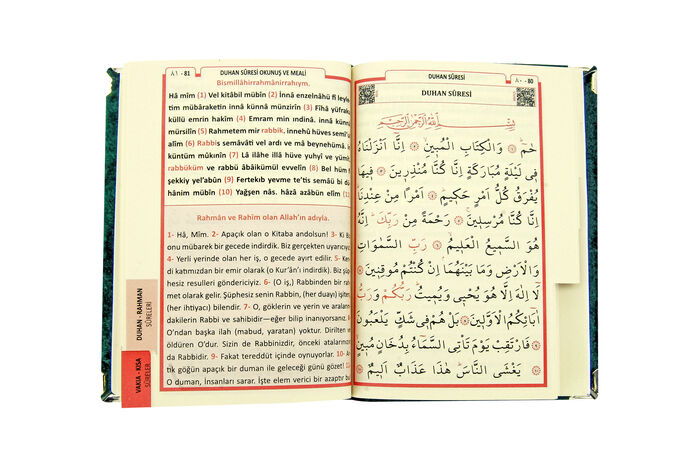 ٨١ - 81
DUHAN SÛRESİ OKUNUŞ VE MEALİ
Bismillâhirrahmânirrahıym.
Hâ mîm (1) Vel kitâbil mübîn (2) İnnâ enzelnâhü fî leyle
tim mübâraketin innâ künnâ münzirîn (3) Fîhâ yüfrak
küllü emrin hakîm (4) Emram min ındinâ, innâ künnâ
mürsilîn (5) Rahmetem mir rabbik, innehû hüves semî'ul
(6) Rabbis semâvâti vel ardı ve mâ beynehümâ,
küntüm mûkınîn (7) Lâ ilâhe illâ hüve yuhyî ve yümît,
rabbüküm ve rabbü âbâikümül evvelîn (8) Bel hüm
şekkiy yel'abûn (9) Fertekıb yevme te'tis semâü bi dü
hânim mübîn (10) Yağşen nâs. hâzâ azâbün elîm
Rahmân ve Rahîm olan Allah'ın adıyla.
1- Hâ, Mîm. 2- Apaçık olan o Kitaba andolsun! 3- Ki Biz
onu mübarek bir gecede indirdik. Biz gerçekten uyarıcıyız.
4- Yerli yerinde olan her iş, o gecede ayırt edilir. 5- Ken
di katımızdan bir emir olarak (o Kur'ân'ı indirdik). Biz şüp
hesiz resulleri göndericiyiz. 6- (O iş,) Rabbinden bir rah
met olarak gelir. Şüphesiz senin Rabbin, (her duayı) işiten
(her ihtiyacı) bilendir. 7- O, göklerin ve yerin ve araların
dakilerin Rabbi ve sahibidir—eğer bilip inanıyorsanız.
O'ndan başka ilah (mabud, yaratan) yoktur. Dirilten
öldüren O'dur. Sizin de Rabbinizdir, önceki atalarınızın
da Rabbidir. 9- Fakat tereddüt içinde oynuyorlar. 10- Ar
tık göğün apaçık bir duman ile geleceği günü gözet!
O duman, İnsanları sarar. İşte elem verici bir azaptır bu
DUHAN - RAHMAN
SÛRELERİ
VAKIA - KISA
SÛRELER
DUHAN SÛRESİ
٨٠ - 80
DUHAN SÛRESİ
بِسْمِ اللّٰهِ الرَّحْمٰنِ الرَّحِيمِ
حٰمٓ ۞ وَالْكِتَابِ الْمُبِينِ ۞ اِنَّٓا اَنْزَلْنَاهُ
فِى لَيْلَةٍ مُبَارَكَةٍ اِنَّا كُنَّا مُنْذِرِينَ ۞ فِيهَا
يُفْرَقُ كُلُّ اَمْرٍ حَكِيمٍ ۞ اَمْرًا مِنْ عِنْدِنَا
اِنَّا كُنَّا مُرْسِلِينَ ۞ رَحْمَةً مِنْ رَبِّكَ اِنَّهُ
هُوَ السَّمِيعُ الْعَلِيمُ ۞ رَبِّ السَّمٰوَاتِ
وَالْاَرْضِ وَمَا بَيْنَهُمَا اِنْ كُنْتُمْ مُوقِنِينَ ۞
لَٓا اِلٰهَ اِلَّا هُوَ يُحْيِى وَيُمِيتُ رَبُّكُمْ وَرَبُّ
اٰبَٓائِكُمُ الْاَوَّلِينَ ۞ بَلْ هُمْ فِى شَكٍّ يَلْعَبُونَ
۞ فَارْتَقِبْ يَوْمَ تَاْتِى السَّمَٓاءُ بِدُخَانٍ مُبِينٍ
۞ يَغْشَى النَّاسَ هٰذَا عَذَابٌ اَلِيمٌ ۞